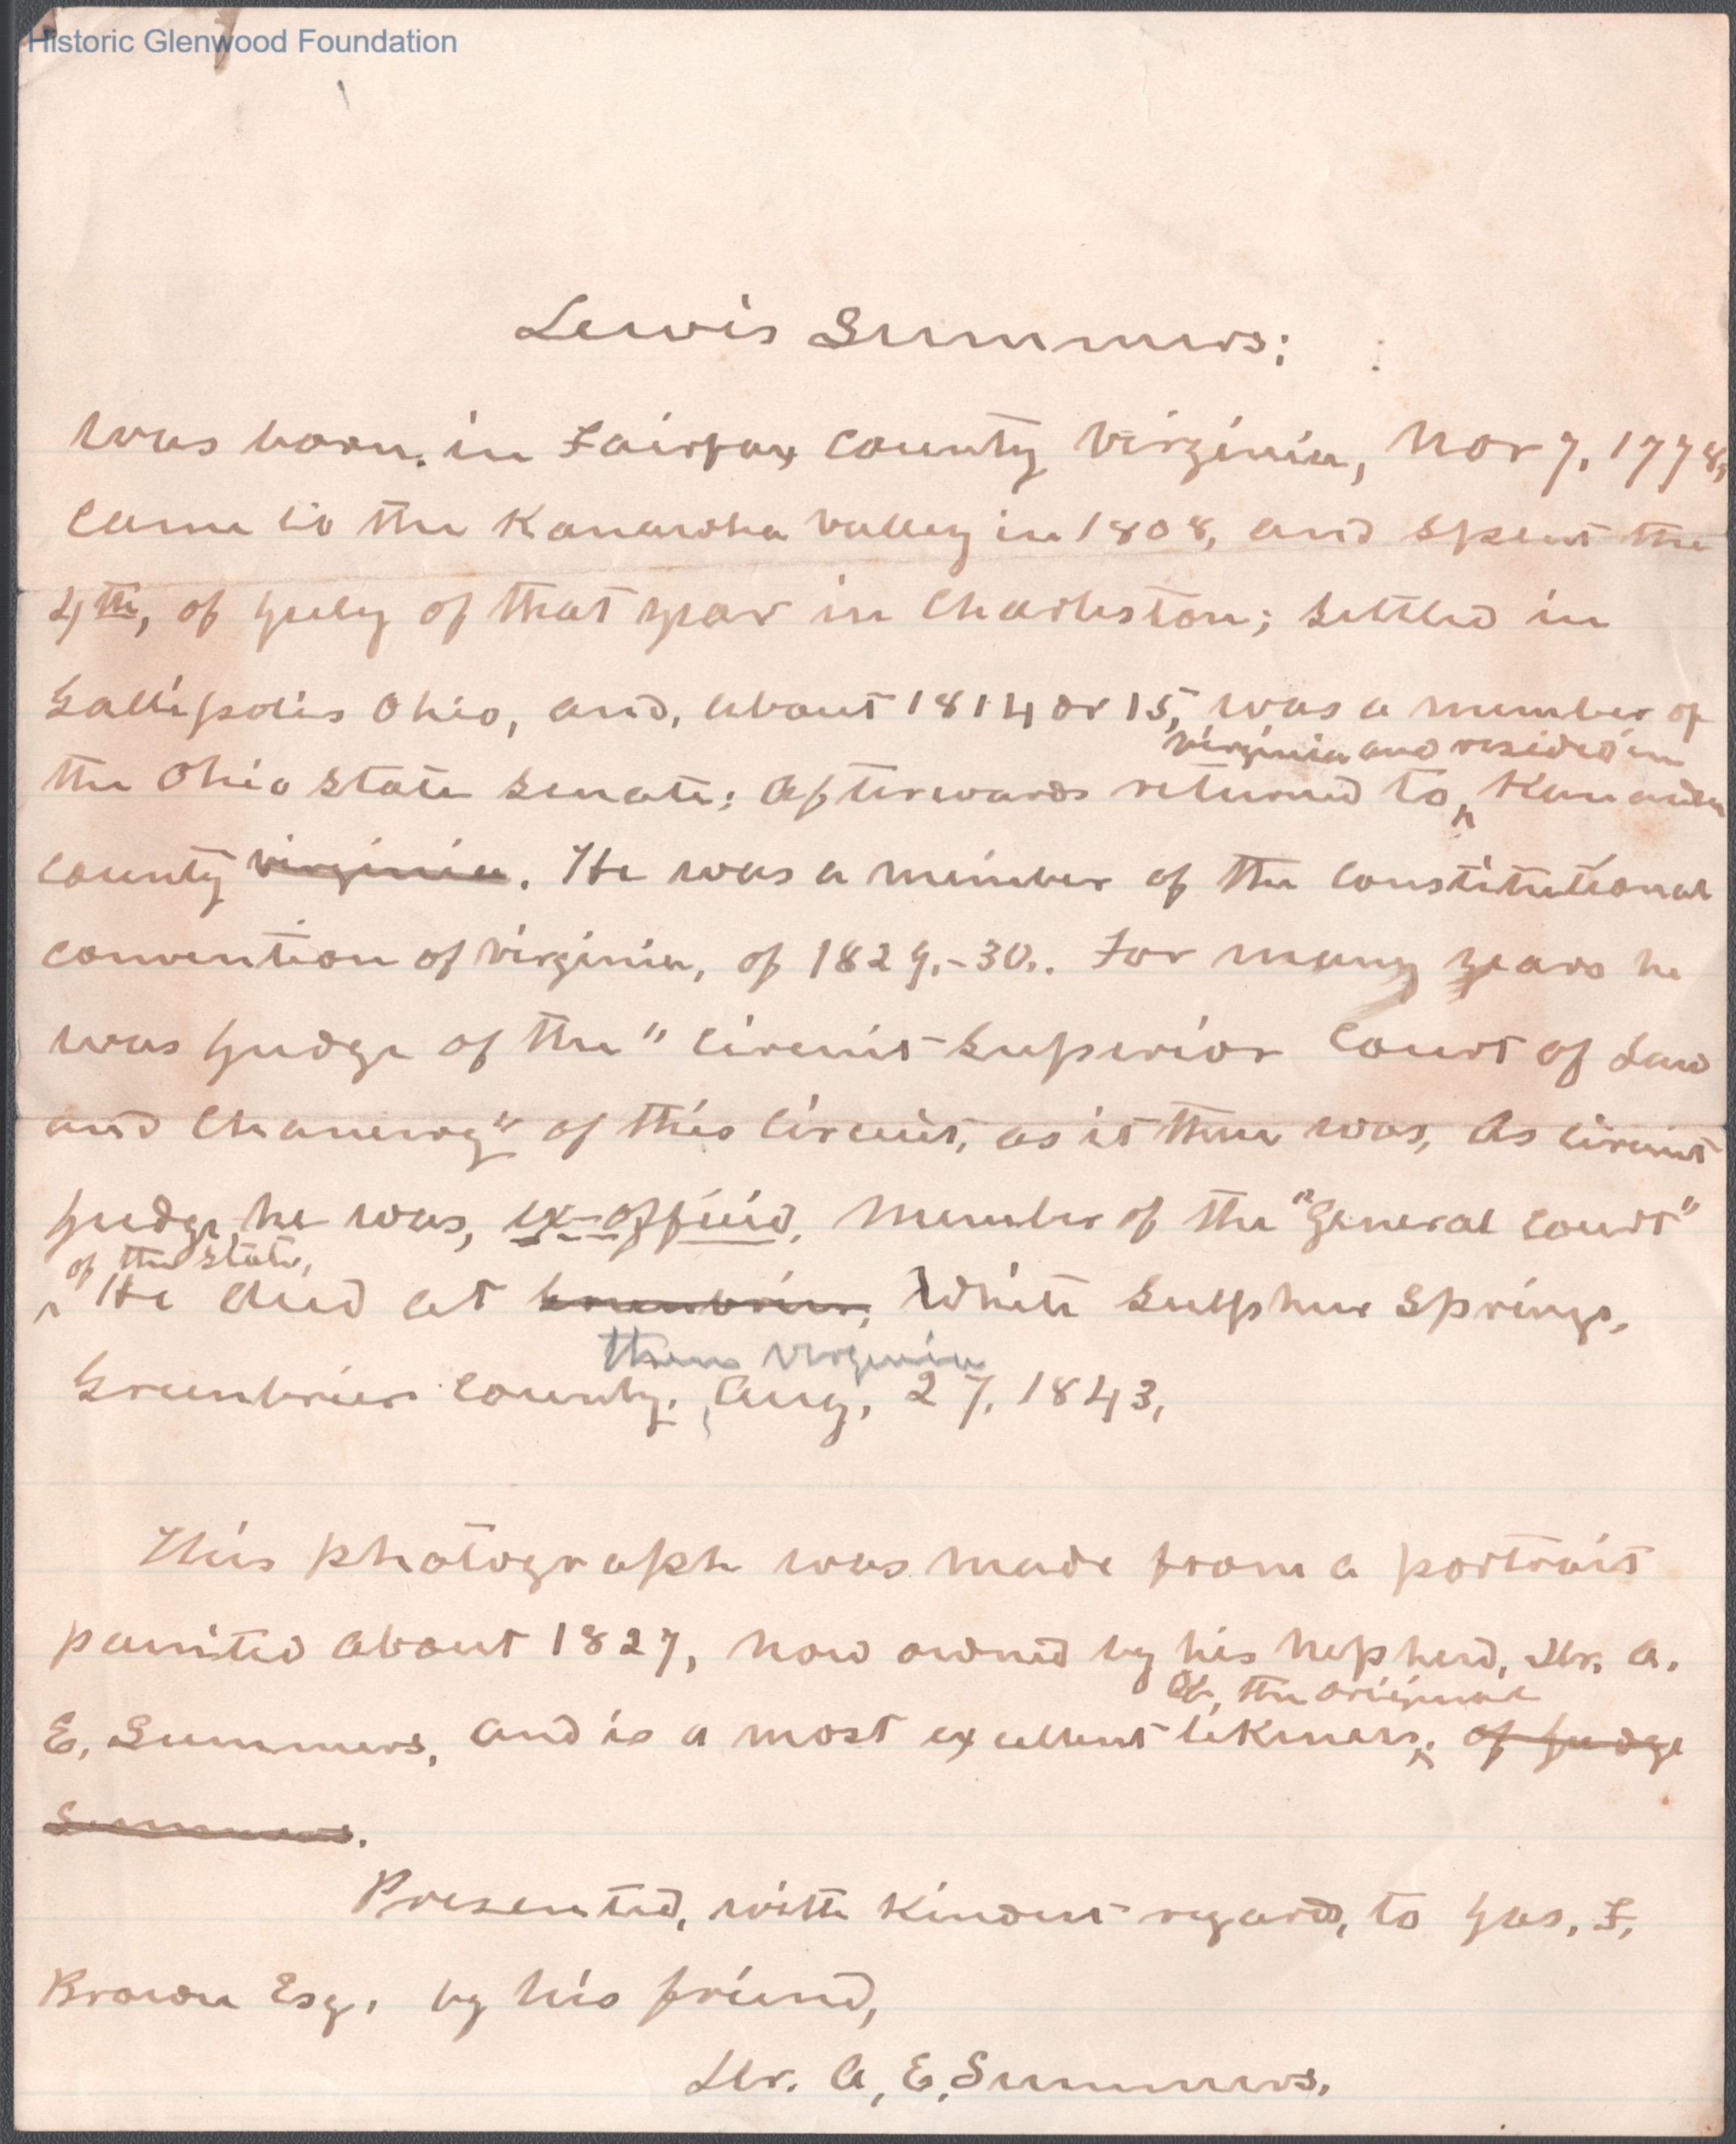 Historic Glenwood Foundation
Lewis Summers:
was born in Fairfax county Virginia, Nov 7, 1778,
came to the Kanawha valley in 1808, and spent the
4th, of July of that year in Charleston; settled in
Gallipolis Ohio, and, about 1814 or 15, was a member of
virginia and resided in
the Ohio State Senate; afterwards returned to ^ Kanawha
county virginia. He was a member of the constitutional
convention of virginia, of 1829,-30.. For many years he
was Judge of the "Circuit Superior Court of Law
and Chancery" of this circuit, as it then was, As circuit
Judge, he was, ex-officio, member of the "General Court"
of the state,
^ He died at Greenbrier, White Sulphur Springs,
then Virginia
Greenbrier county, Aug, 27, 1843,
This photograph was made from a portrait
painted about 1827, now owned by his nephew, Dr. A.
of, the original
E, Summers, and is a most excellent likeness ^. of Judge
Summers.
Presented, with kindest regards, to Jas. F,
Brown Esq, by his friend,
Dr. A, E, Summers.